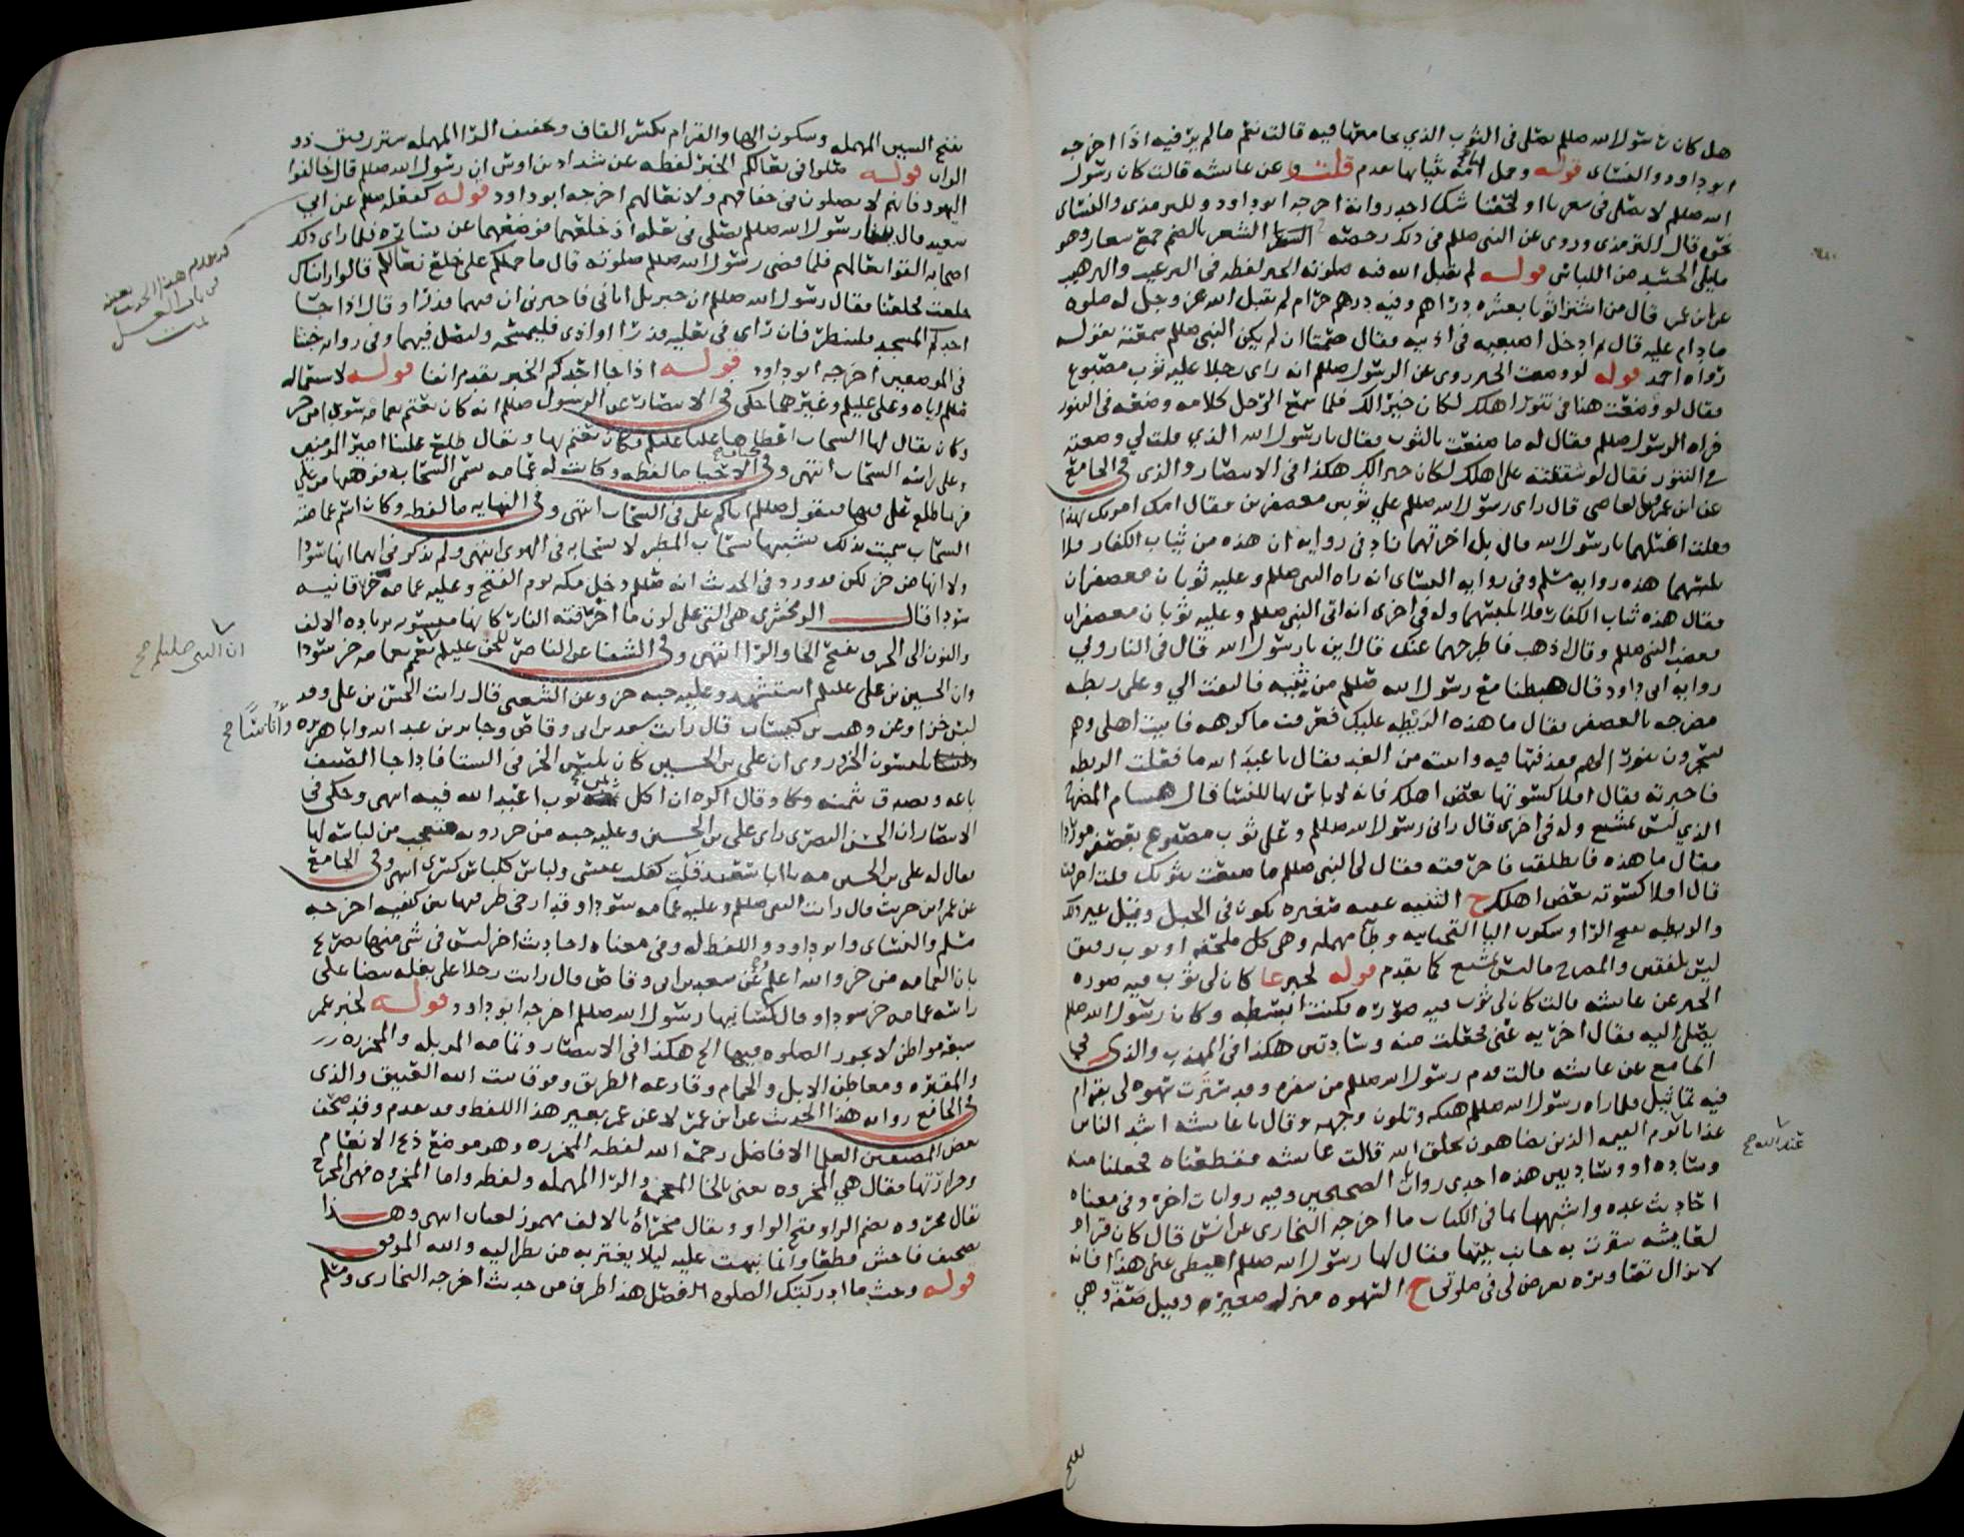 هل كان رسول الله صللم يصلي في الثوب الذي يجامعها فيه قالت نعم ما لم ير فيه اذا اخرجه
ابو داود والنسائ قوله وحمل امامة بثيابها تقدم قلت وعن عائشه قالت كان رسول
الله صللم لا يصلي في شعرنا او لحفنا شك احد رواته اخرجه ابو داود وللترمذي والنسائ
نحوه قال الترمذي وروي عن النبي صللم في ذلك رخصه الشعر بالضم جمع شعار وهو
ما يلي الجسد من اللباس قوله لم يقبل الله فيه صلوته الخبر لفظه في الترغيب والترهيب
عن ابن عمر قال من اشترا ثوبا بعشره دراهم وفيه درهم حرام لم يقبل الله عز وجل له صلوه
ما دام عليه قال ثم ادخل اصبعيه في اذنيه فقال صمتا ان لم يكن النبي صللم سمعته يقوله
رواه احمد قوله لو وضعت الخبر روي عن الرسول صللم انه راى رجلا عليه ثوب مصبوغ
فقال لو وضعت هذا في تنور اهلك لكان خيرا لك فلما سمع الرجل كلامه وضعه في التنور
فراه الرسول صللم فقال له ما صنعت بالثوب فقال يا رسول الله الذي قلت لي وضعته
في التنور فقال لو شققته على اهلك لكان خير الك هكذا في الانتصار والذي في الجامع
عن ابن عمرو بن العاصي قال راى رسول الله صللم علي ثوبين معصفرين فقال امك امرتك بهذا
فقلت اغسلهما يا رسول الله قال بل احرقهما زاد في روايه ان هذه من ثياب الكفار فلا
تلبسهما هذه روايه مسلم وفي روايه النسائ انه راه النبي صللم وعليه ثوبان معصفران
فقال هذه ثياب الكفار فلا تلبسهما وله في اخرى انه اتى النبي صللم وعليه ثوبان معصفران
فغضب النبي صللم وقال اذهب فاطرحهما عنك قال اين يا رسول الله قال في النار ولي
روايه ابي داود قال هبطنا مع رسول الله صللم من ثنيه فالتفت الي وعلي ريطه
مضرجه بالعصفر فقال ما هذه الريطه عليك فعرفت ما كره فاتيت اهلي وهم
يسجرون تنورا لهم فقذفتها فيه واتيته من الغد فقال يا عبد الله ما فعلت الريطه
فاخبرته فقال افلا كسوتها بعض اهلك فانه لا باس بها للنسا قال هشام المضرجه
الذي ليس بمشبع وله في اخرى قال راني رسول الله صللم وعلي ثوب مصبوغ بعصفر موردا
فقال ما هذه فانطلقت فاحرقته فقال لي النبي صللم ما صنعت بثوبك قلت احرقته
قال افلا كسوته بعض اهلك ح الثنيه عقبه صغيره تكون في الجبل وقيل غير ذلك
والريطه بفتح الرا وسكون اليا التحتانيه وطا مهمله وهي كل ملحفه او ثوب رقيق
ليس بلفقين والمضرج ما ليس بمشبع كما تقدم قوله لخبر عا كان لي ثوب فيه صوره
الخبر عن عائشه قالت كان لي ثوب فيه صوره فكنت ابسطه وكان رسول الله صللم
يصلي اليه فقال اخريه عني فجعلت منه وسادتين هكذا في المهذب والذي في
الجامع عن عائشه قالت قدم رسول الله صللم من سفره وقد سترت سهوه لي بقرام
فيه تماثيل فلما راه رسول الله صللم هتكه وتلون وجهه وقال يا عائشه اشد الناس
عذابا يوم القيمه الذين يضاهون بخلق الله قالت عائشه فقطعناه فجعلنا منه
عند الله صح
وساده او وسادتين هذه احدى روايات الصحيحين وفيه روايات اخره وفي معناه
احاديث عده واشبهها بما في الكتاب ما اخرجه البخاري عن انس قال كان قرام
لعايشه سترت به جانب بيتها فقال لها رسول الله صللم اميطي عني هذا فانه
لا تزال تصاويره تعرض لي في صلوتي ح السهوه منزله صغيره وقيل صفه وهي
بفتح
بفتح السين المهمله وسكون الها والقرام بكسر القاف وتخفيف الرا المهمله ستر رقيق ذو
الوان قوله صلوا في نعالكم الخبر لفظه عن شداد بن اوس ان رسول الله صللم قال خالفوا
اليهود فانهم لا يصلون في خفافهم ولا نعالهم اخرجه ابو داود قوله كفعله صللم عن ابي
سعيد قال بينا رسول الله صللم يصلي في نعله اذ خلعهما فوضعهما عن يساره فلما راى ذلك
اصحابه القوا نعالهم فلما قضى رسول الله صللم صلوته قال ما حملكم على خلع نعالكم قالوا رايناك
خلعت فخلعنا فقال رسول الله صللم ان جبريل اتاني فاخبرني ان فيهما قذرا وقال اذا جا
احدكم المسجد فلينظر فان راى في نعليه قذرا او اذى فليمسحه وليصل فيهما وفي روايه خبثا
في الموضعين اخرجه ابو داود قوله اذا جا احدكم الخبر تقدم انفا قوله لاستعماله
صللم اياه وعلي عليلم وغيرهما حكى في الانتصار عن الرسول صللم انه كان يعتم بعمامه سودا من خز
وكان يقال لها السحاب اعطاها عليا عليلم فكان يعتم بها ويقال طلع علينا امير المومنين
وعلى راسه السحاب انتهى وفي الاحيا ما لفظه وكانت له عمامه تسمى السحاب فوهبها من علي
فربما طلع علي فيها فيقول صللم اتاكم علي في السحاب انتهى وفي النهايه ما لفظه وكان اسم عمامته
السحاب سميت بذلك تشبيها بسحاب المطر لانسحابه في الهوى انتهى ولم يذكر في ايهما انها سودا
ولا انها من خز لكن قد ورد في الحديث انه صللم دخل مكه يوم الفتح وعليه عمامه حرقانيه
سودا قال الزمخشري هي التي على لون ما احرقته النار كانها منسوبه بزياده الالف
والنون الى الحرق بفتح الحا والرا انتهى وفي الشفا عن الناصر للحق عليلم تعمم بعمامه خز سودا
ان النبي صللم صح
وان الحسين بن علي عليلم استشهد وعليه جبه خز وعن الشعبي قال رايت الحسن بن علي وقد
لبس خزا وعن وهب بن كيسان قال رايت سعد بن ابي وقاص وجابر بن عبد الله وابا هريره
وانسا صح
يلبسون الخز وروي ان علي بن الحسين كان يلبس الخز في الشتا فاذا جا الصيف
باعه وتصدق بثمنه وكا وقال اكره ان اكل ثمن ثوب اعبد الله فيه انتهى وحكى في
الانتصار ان الحسن البصري راى علي بن الحسين وعليه جبه من خز رديه فتعجب من لباسه لها
فقال له علي بن الحسين مه يا ابا سعيد قلب كقلب عيسى ولباس كلباس كسرى انتهى وفي الجامع
عن عمرو بن حريث قال رايت النبي صللم وعليه عمامه سودا وقد ارخى طرفيها بين كتفيه اخرجه
مسلم والنسائ وابو داود واللفظ له وفي معناه احاديث اخر ليس في شي منها تصريح
بان العمامه من خز والله اعلم عن سعد بن ابي وقاص قال رايت رجلا على بغله بيضا على
راسه عمامه خز سودا وقال كسانيها رسول الله صللم اخرجه ابو داود قوله لخبر عمر
سبعه مواطن لا يجوز الصلوه فيها الخ هكذا في الانتصار وتمامه المزبله والمجزره
والمقبره ومعاطن الابل والحمام وقارعه الطريق وفوق بيت الله العتيق والذي
في الجامع روايه هذا الحديث عن ابن عمر لا عن عمر بغير هذا اللفظ وقد تقدم وقد صحف
بعض المصنفين العلما الافاضل رحمه الله لفظه المجزره وهو موضع ذبح الانعام
وجزارتها فقال هي المخروه يعني بالخا المعجمه والرا المهمله ولفظه واما المخروه فهي المخرج
يقال مخروه بضم الرا وفتح الواو ويقال مخراه بالالف مهموز لغتان انتهى وهذا
تصحيف فاحش قطعا وانما نبهت عليه ليلا يغتر به من نظر اليه والله الموفق
قوله وحيث ما ادركتك الصلوه الا فصل هذا طرف من حديث اخرجه البخاري ومسلم